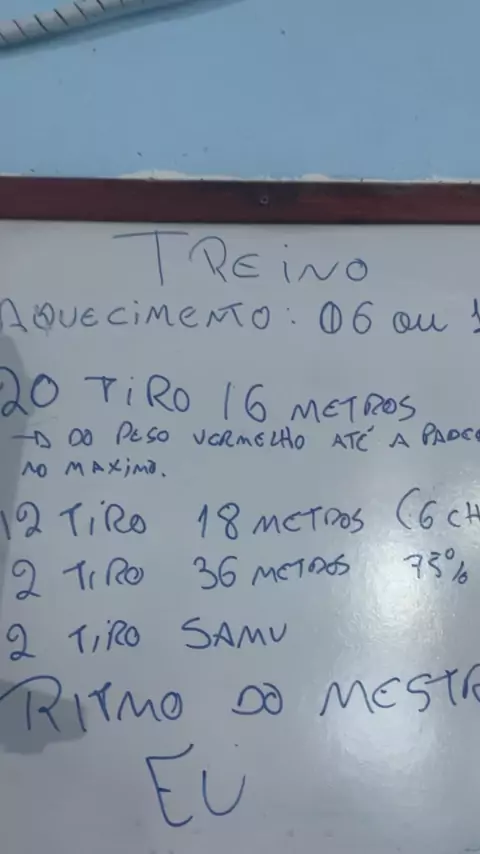 TREINO
AQUECIMENTO: 06 OU 1
20 TIRO 16 METROS
→ DO PESO VERMELHO ATÉ A PAREDE
NO MAXIMO.
12 TIRO 18 METROS (6 CH
2 TIRO 36 METROS 75%
2 TIRO SAMU
RITMO DO MESTR
EU